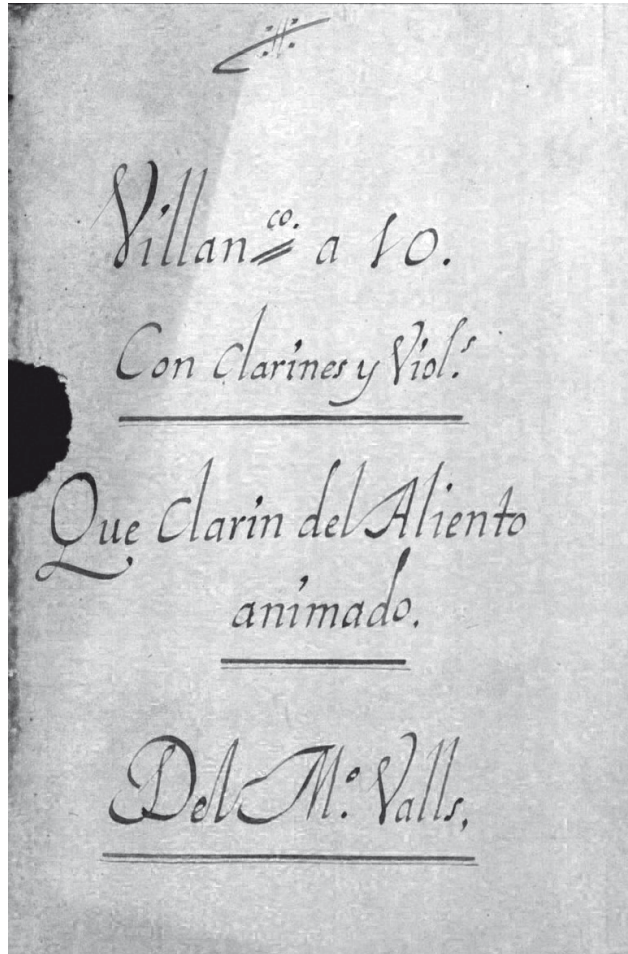 Villan.co a 10.
Con Clarines y Viol.s
Que Clarin del Aliento
animado.
Del M.o Valls,